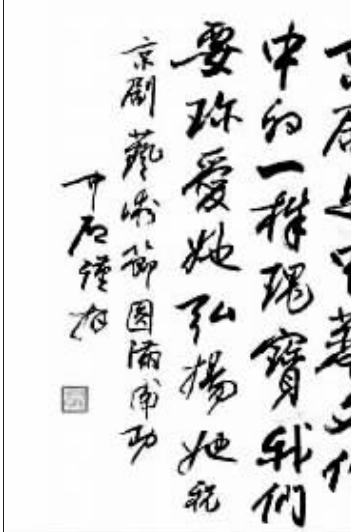 京剧是中华文化
中的一株瑰寶我們
要珎愛她弘揚她祝
京剧藝術節圆滿成功